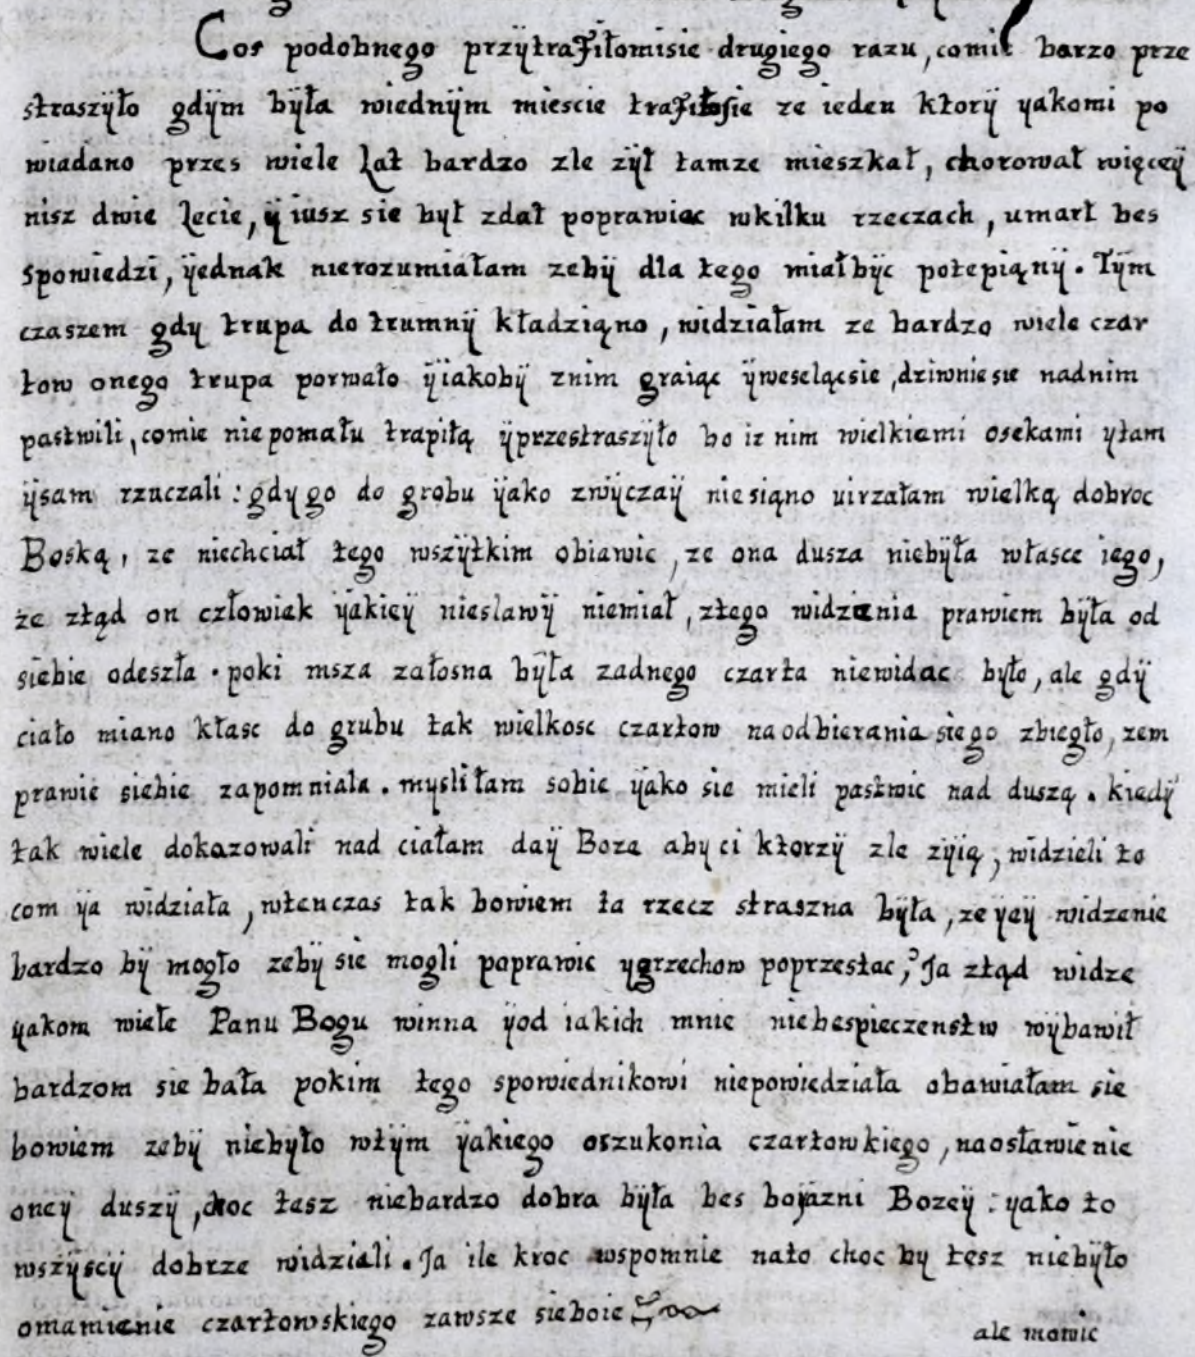 Cos podobnego przÿtrafiłomisie drugiego razu, comie barzo prze
straszÿło gdÿm bÿła wiednÿm miescie trafiłosie ze ieden ktorÿ yakomi po
wiadano przes wiele lat bardzo zle zÿł tamze mieszkał, chorował więceÿ
nisz dwie lecie, ÿ iusz sie był zdał poprawiac wkilku rzeczach, umarł bes
spowiedzi, ÿednak nierozumiałam zebÿ dla tego miałbÿc potepiąnÿ. Tÿm
czaszem gdy trupa do trumnÿ kładziąno, widziałam ze bardzo wiele czar
tow onego trupa porwało ÿiakobÿ znim graiąc ÿweseląćsie, dziwniesie nadnim
pastwili, comie niepomału trapiłą ÿprzestraszÿło bo iz nim wielkiemi osekami ytam
ÿsam rzuczali: gdy go do grobu ÿako zwÿczaÿ niesiąno uirzałam wielką dobroc
Boską, ze niechciał tego wszÿtkim obiawic, ze ona dusza niebÿła własce iego,
ze ztąd on człowiek ÿakieÿ nieslawÿ niemiał, ztego widzenia prawiem bÿła od
siebie odeszła. poki msza załosna bÿła zadnego czarta niewidac było, ale gdÿ
ciało miano kłasc do grubu tak wielkosc czartow naodbierania siego zbiegło, zem
prawie siebie zapomniala. mysliłam sobie ÿako sie mieli pastwic nad duszą. kiedÿ
tak wiele dokazowali nad ciałam daÿ Boze aby ci ktorzÿ zle zÿią, widzieli to
com ÿa widziała, wtenczas tak bowiem ta rzecz straszna bÿła, ze yeÿ widzenie
bardzo bÿ mogło zebÿ sie mogli poprawic ygrzechow poprzestac, Ja ztąd widze
yakom wiele Panu Bogu winna ÿod iakich mnie niebespieczenstw wÿbawił
bardzom sie bała pokim tego spowiednikowi niepowiedziała obawiałam sie
bowiem zebÿ niebyło wtÿm ÿakiego oszukonia czartowkiego, naosławienie
oneÿ duszÿ, choc tesz niebardzo dobra bÿła bes bojazni Bozeÿ: yako to
wszÿscÿ dobrze widzieli. Ja ile kroc wspomnie nato choc by tesz niebÿło
omamienie czartowskiego zawsze sieboie
ale mowic